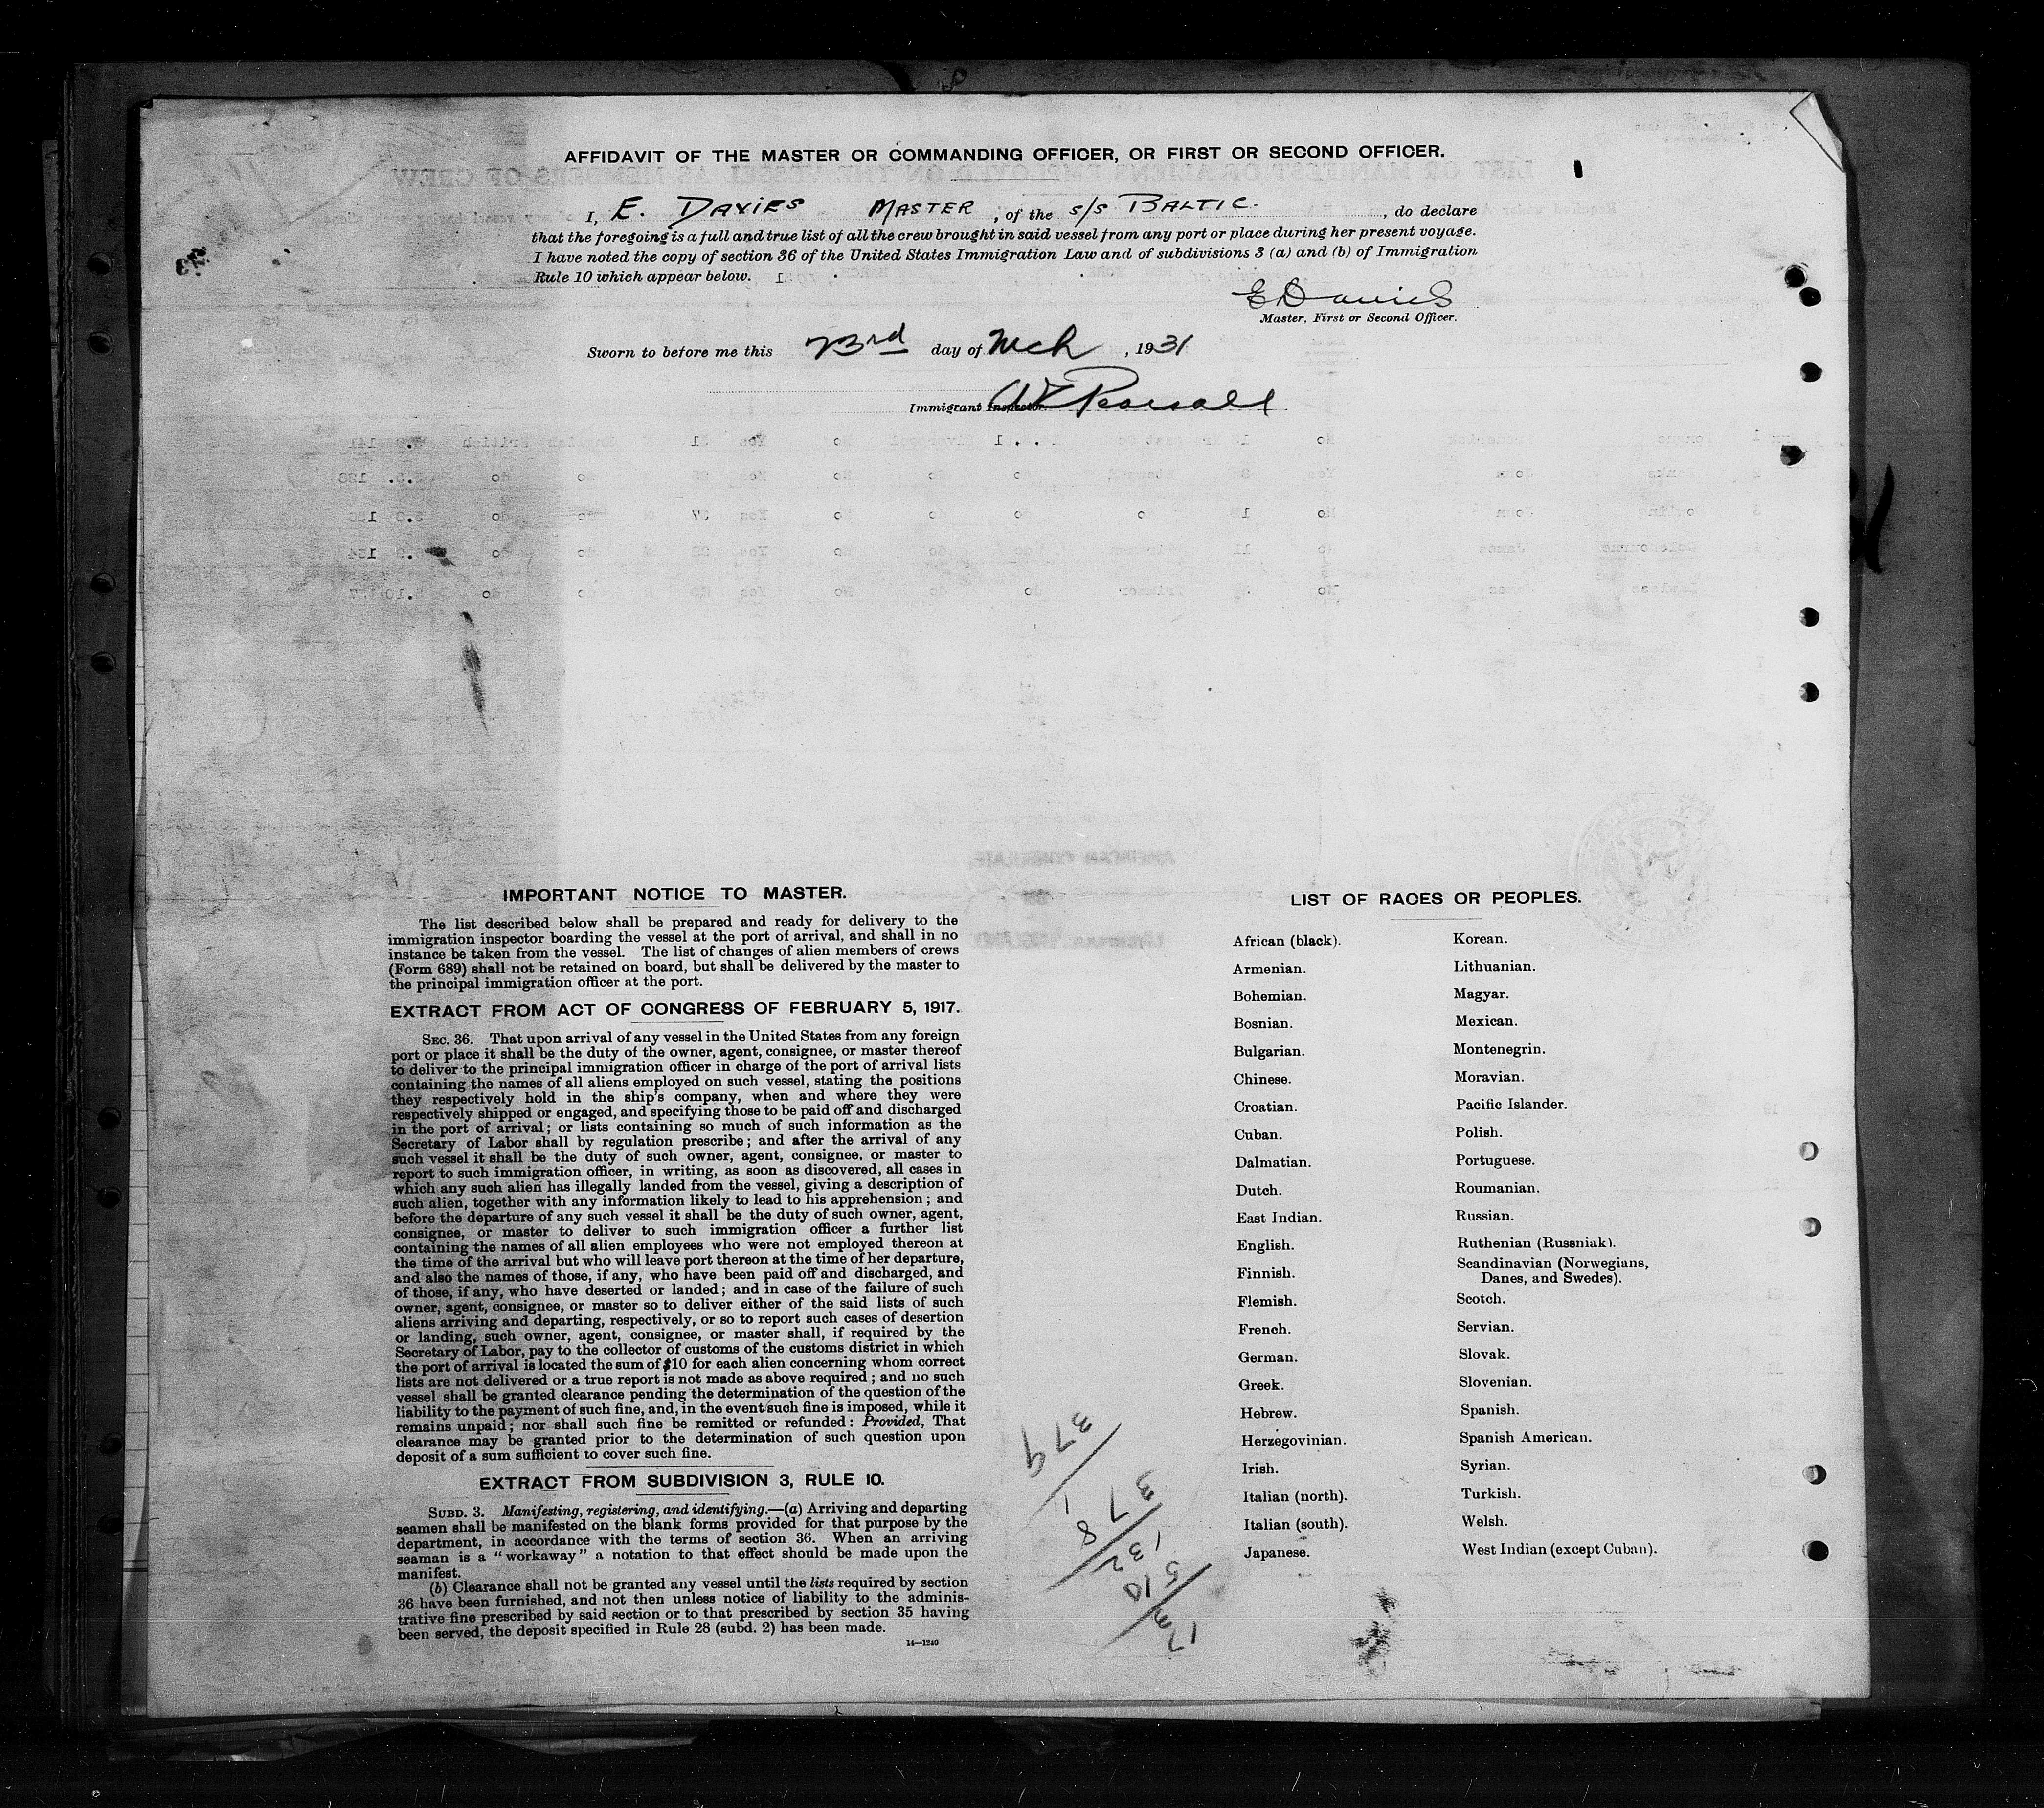 AFFIDAVIT OF THE MASTER OR COMMANDING OFFICER, OR FIRST OR SECOND OFFICER.
I, E. DAVIES MASTER, of the S/S BALTIC., do declare
that the foregoing is a full and true list of all the crew brought in said vessel from any port or place during her present voyage.
I have noted the copy of section 36 of the United States Immigration Law and of subdivisions 3 (a) and (b) of Immigration
Rule 10 which appear below.
E Davies
Master, First or Second Officer.
Sworn to before me this 23rd day of Mch, 1931
Immigrant Inspector.
IMPORTANT NOTICE TO MASTER.
The list described below shall be prepared and ready for delivery to the
immigration inspector boarding the vessel at the port of arrival, and shall in no
instance be taken from the vessel. The list of changes of alien members of crews
(Form 689) shall not be retained on board, but shall be delivered by the master to
the principal immigration officer at the port.
EXTRACT FROM ACT OF CONGRESS OF FEBRUARY 5, 1917.
SEC. 36. That upon arrival of any vessel in the United States from any foreign
port or place it shall be the duty of the owner, agent, consignee, or master thereof
to deliver to the principal immigration officer in charge of the port of arrival lists
containing the names of all aliens employed on such vessel, stating the positions
they respectively hold in the ship's company, when and where they were
respectively shipped or engaged, and specifying those to be paid off and discharged
in the port of arrival; or lists containing so much of such information as the
Secretary of Labor shall by regulation prescribe; and after the arrival of any
such vessel it shall be the duty of such owner, agent, consignee, or master to
report to such immigration officer, in writing, as soon as discovered, all cases in
which any such alien has illegally landed from the vessel, giving a description of
such alien, together with any information likely to lead to his apprehension; and
before the departure of any such vessel it shall be the duty of such owner, agent,
consignee, or master to deliver to such immigration officer a further list
containing the names of all alien employees who were not employed thereon at
the time of the arrival but who will leave port thereon at the time of her departure,
and also the names of those, if any, who have been paid off and discharged, and
of those, if any, who have deserted or landed; and in case of the failure of such
owner, agent, consignee, or master so to deliver either of the said lists of such
aliens arriving and departing, respectively, or so to report such cases of desertion
or landing, such owner, agent, consignee, or master shall, if required by the
Secretary of Labor, pay to the collector of customs of the customs district in which
the port of arrival is located the sum of $10 for each alien concerning whom correct
lists are not delivered or a true report is not made as above required; and no such
vessel shall be granted clearance pending the determination of the question of the
liability to the payment of such fine, and, in the event such fine is imposed, while it
remains unpaid; nor shall such fine be remitted or refunded: Provided, That
clearance may be granted prior to the determination of such question upon
deposit of a sum sufficient to cover such fine.
EXTRACT FROM SUBDIVISION 3, RULE 10.
SUBD. 3. Manifesting, registering, and identifying.—(a) Arriving and departing
seamen shall be manifested on the blank forms provided for that purpose by the
department, in accordance with the terms of section 36. When an arriving
seaman is a "workaway" a notation to that effect should be made upon the
manifest.
(b) Clearance shall not be granted any vessel until the lists required by section
36 have been furnished, and not then unless notice of liability to the adminis-
trative fine prescribed by said section or to that prescribed by section 35 having
been served, the deposit specified in Rule 28 (subd. 2) has been made.
14—1240
LIST OF RACES OR PEOPLES.
African (black).
Armenian.
Bohemian.
Bosnian.
Bulgarian.
Chinese.
Croatian.
Cuban.
Dalmatian.
Dutch.
East Indian.
English.
Finnish.
Flemish.
French.
German.
Greek.
Hebrew.
Herzegovinian.
Irish.
Italian (north).
Italian (south).
Japanese.
Korean.
Lithuanian.
Magyar.
Mexican.
Montenegrin.
Moravian.
Pacific Islander.
Polish.
Portuguese.
Roumanian.
Russian.
Ruthenian (Russniak).
Scandinavian (Norwegians,
Danes, and Swedes).
Scotch.
Servian.
Slovak.
Slovenian.
Spanish.
Spanish American.
Syrian.
Turkish.
Welsh.
West Indian (except Cuban).
379
1
378
132
510